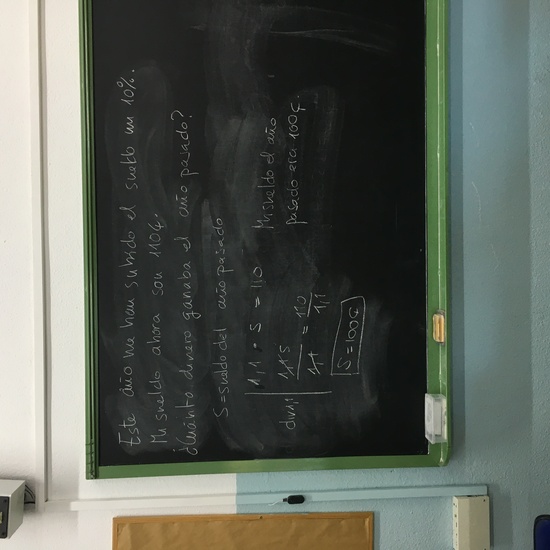 Este año me han subido el sueldo un 10%.
Mi sueldo ahora son 110€.
¿Cuánto dinero ganaba el año pasado?
S = sueldo del año pasado
1,1 · S = 110
1,1 S / 1,1 = 110 / 1,1
S = 100€
Mi sueldo el año
pasado era 100€.